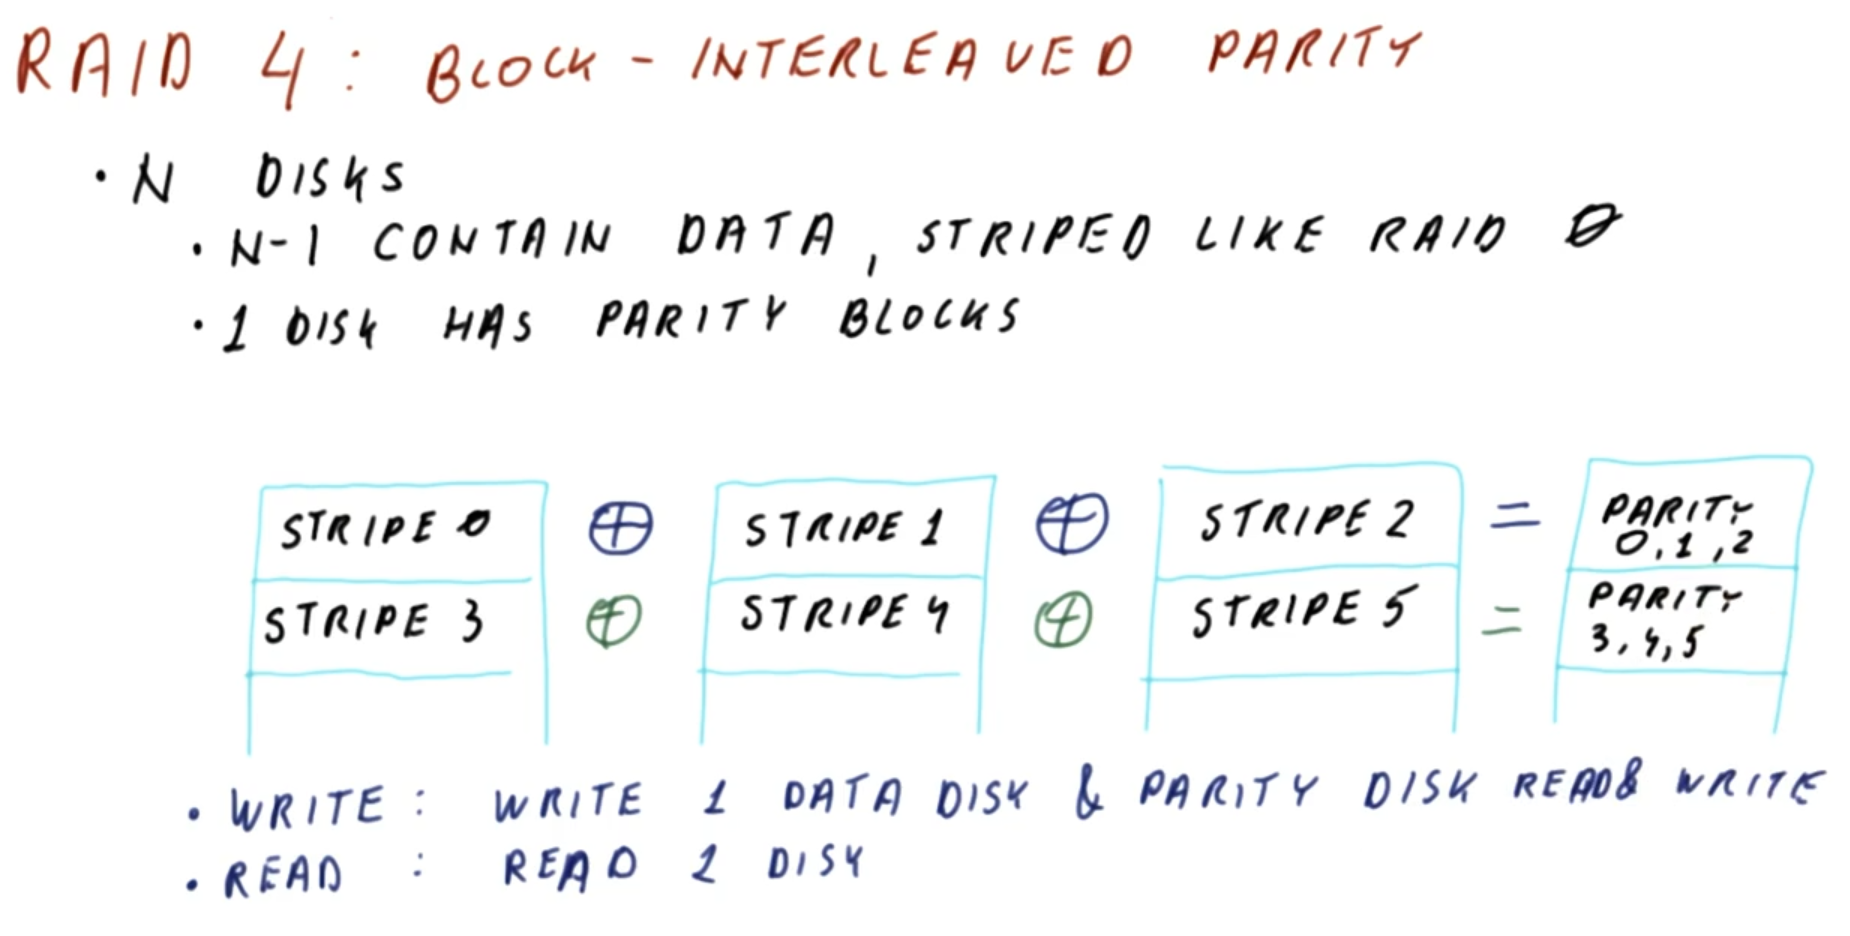 RAID 4: BLOCK-INTERLEAVED PARITY
• N DISKS
• N-1 CONTAIN DATA, STRIPED LIKE RAID 0
• 1 DISK HAS PARITY BLOCKS
STRIPE 0 ⊕ STRIPE 1 ⊕ STRIPE 2 = PARITY 0,1,2
STRIPE 3 ⊕ STRIPE 4 ⊕ STRIPE 5 = PARITY 3,4,5
• WRITE: WRITE 1 DATA DISK & PARITY DISK READ & WRITE
• READ: READ 1 DISK